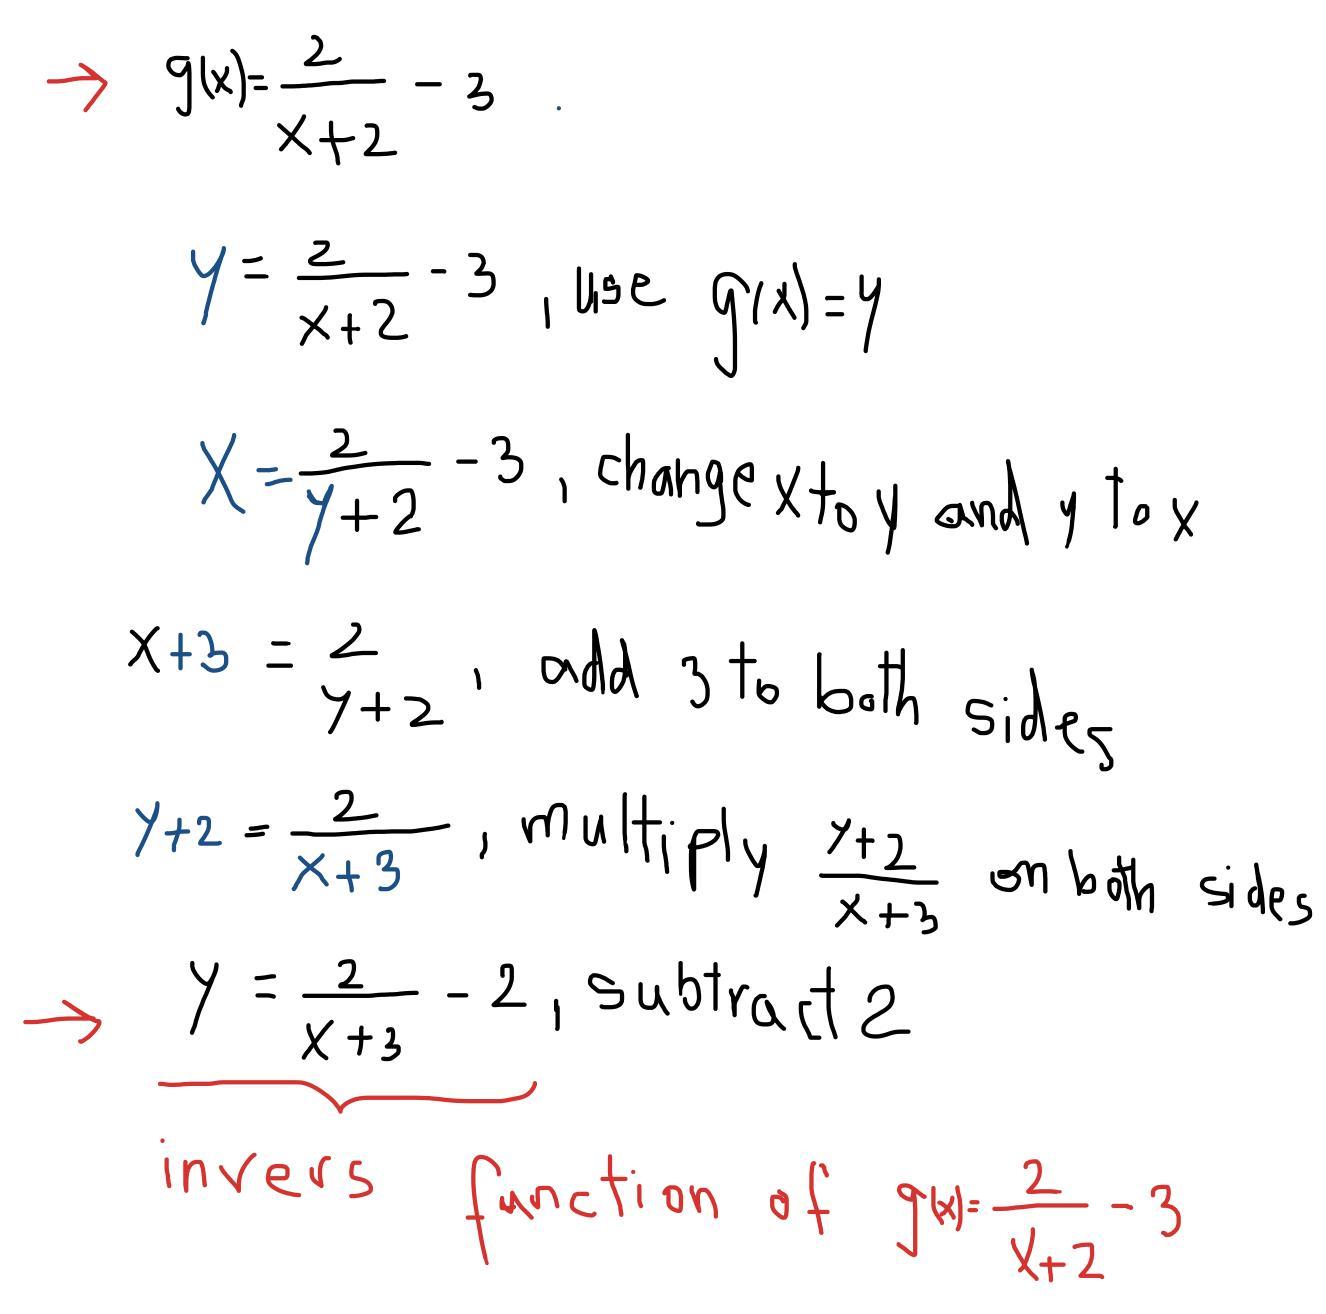 g(x) = 2/(x+2) - 3
y = 2/(x+2) - 3 , use g(x) = y
x = 2/(y+2) - 3 , change x to y and y to x
x+3 = 2/(y+2) , add 3 to both sides
y+2 = 2/(x+3) , multiply (y+2)/(x+3) on both sides
y = 2/(x+3) - 2 , subtract 2
invers function of g(x) = 2/(x+2) - 3